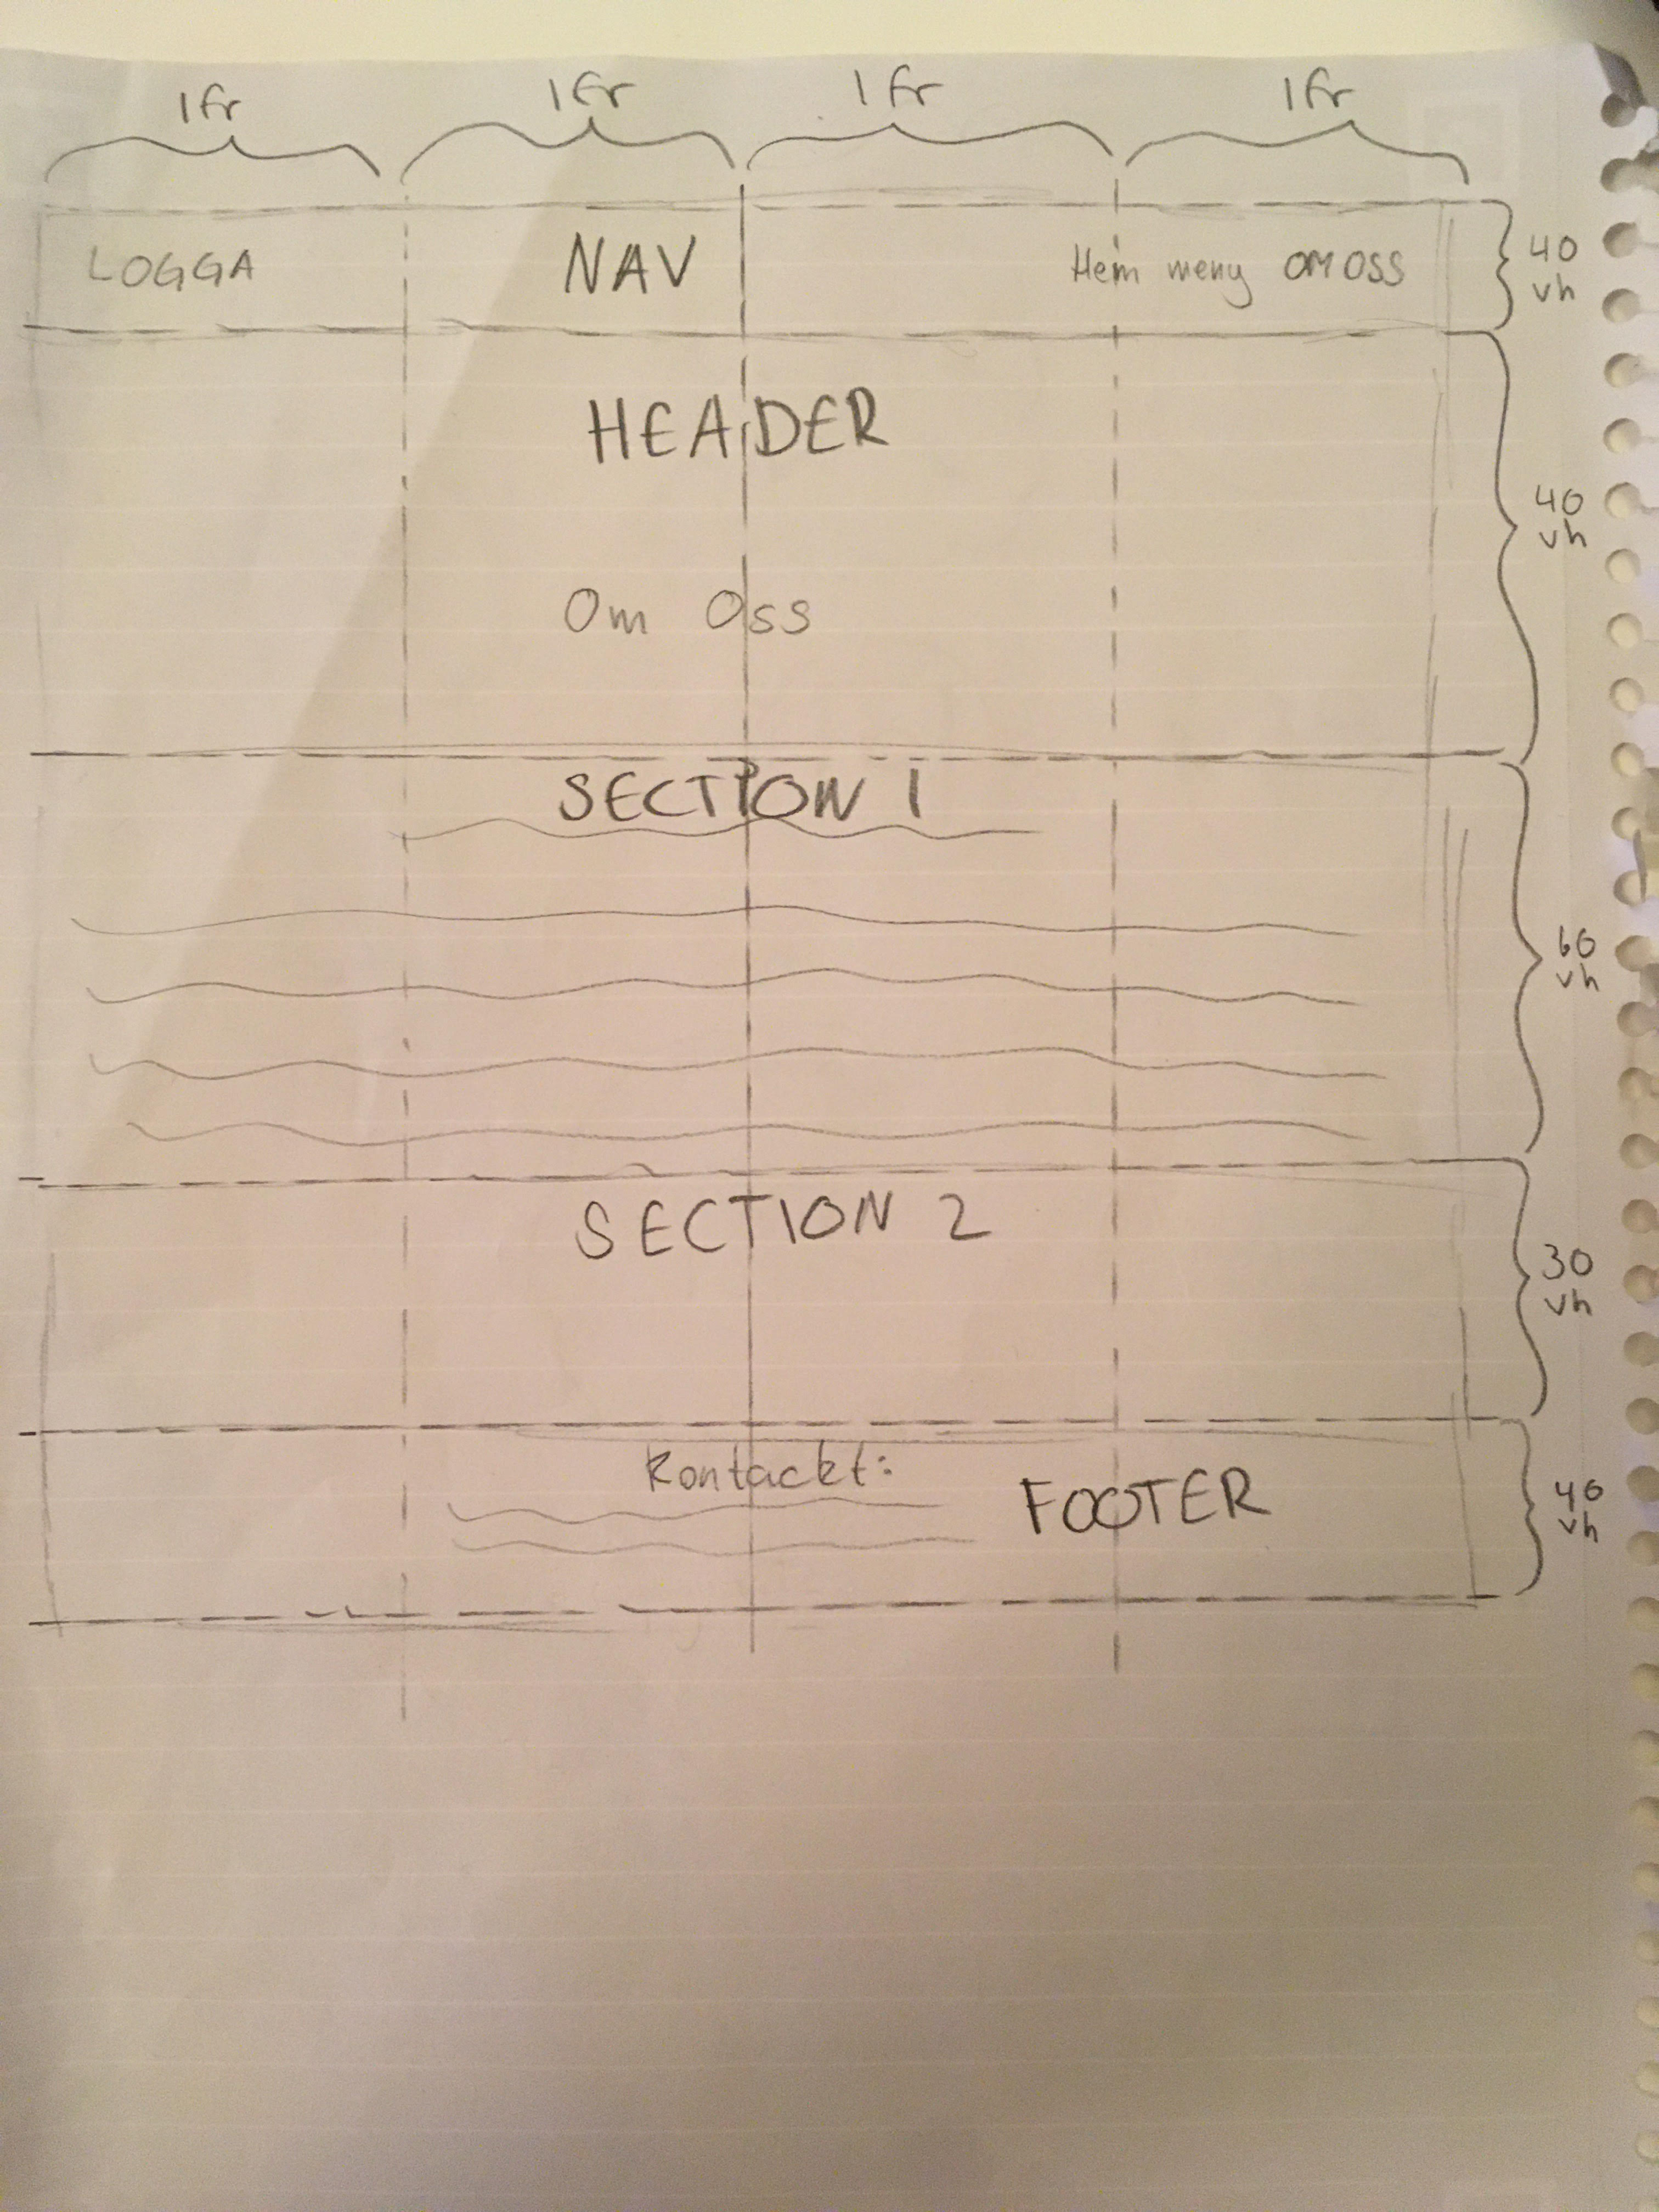 1fr 1fr 1fr 1fr
LOGGA NAV Hem meny OM OSS
40
vh
HEADER
40
vh
Om Oss
SECTION 1
60
vh
SECTION 2
30
vh
Kontackt:
FOOTER
40
vh